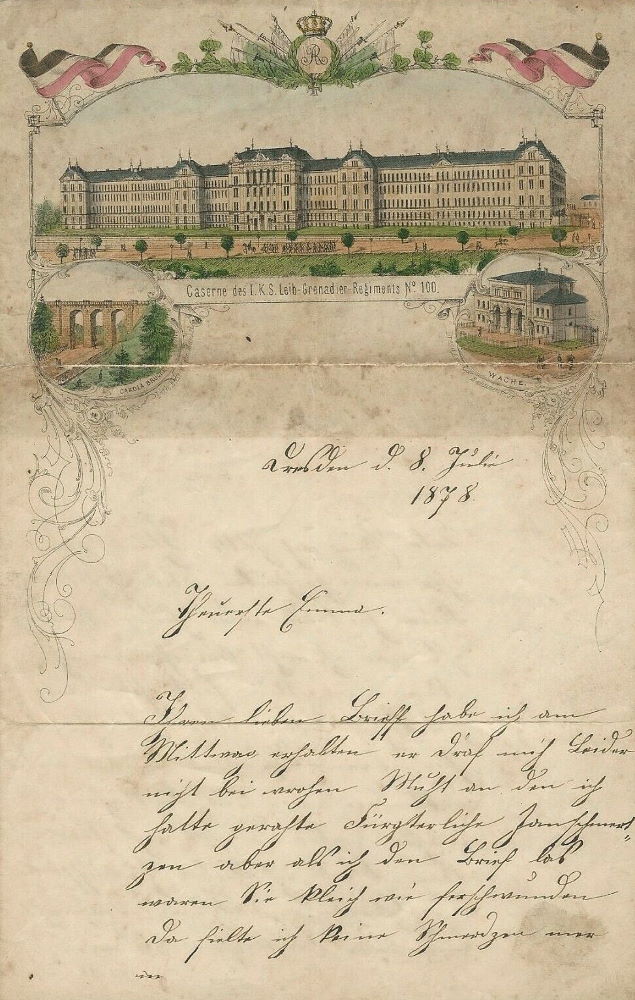 R
Caserne des I. K. S. Leib-Grenadier-Regiments Nº 100.
CAROLA BRÜCKE
WACHE
Dresden d. 8. Julie
1878
Theuerste Emma.
Ihren lieben Brieff habe ich am
Mittwag erhalten er draf mich Leider
nicht bei wrohen Muht an den ich
hatte gerahte Fürgterliche Zanschmert"
zen aber als ich den Brief las
waren Sie kleich wie ferschwunden
Da fielte ich keine Schmerdzen mer